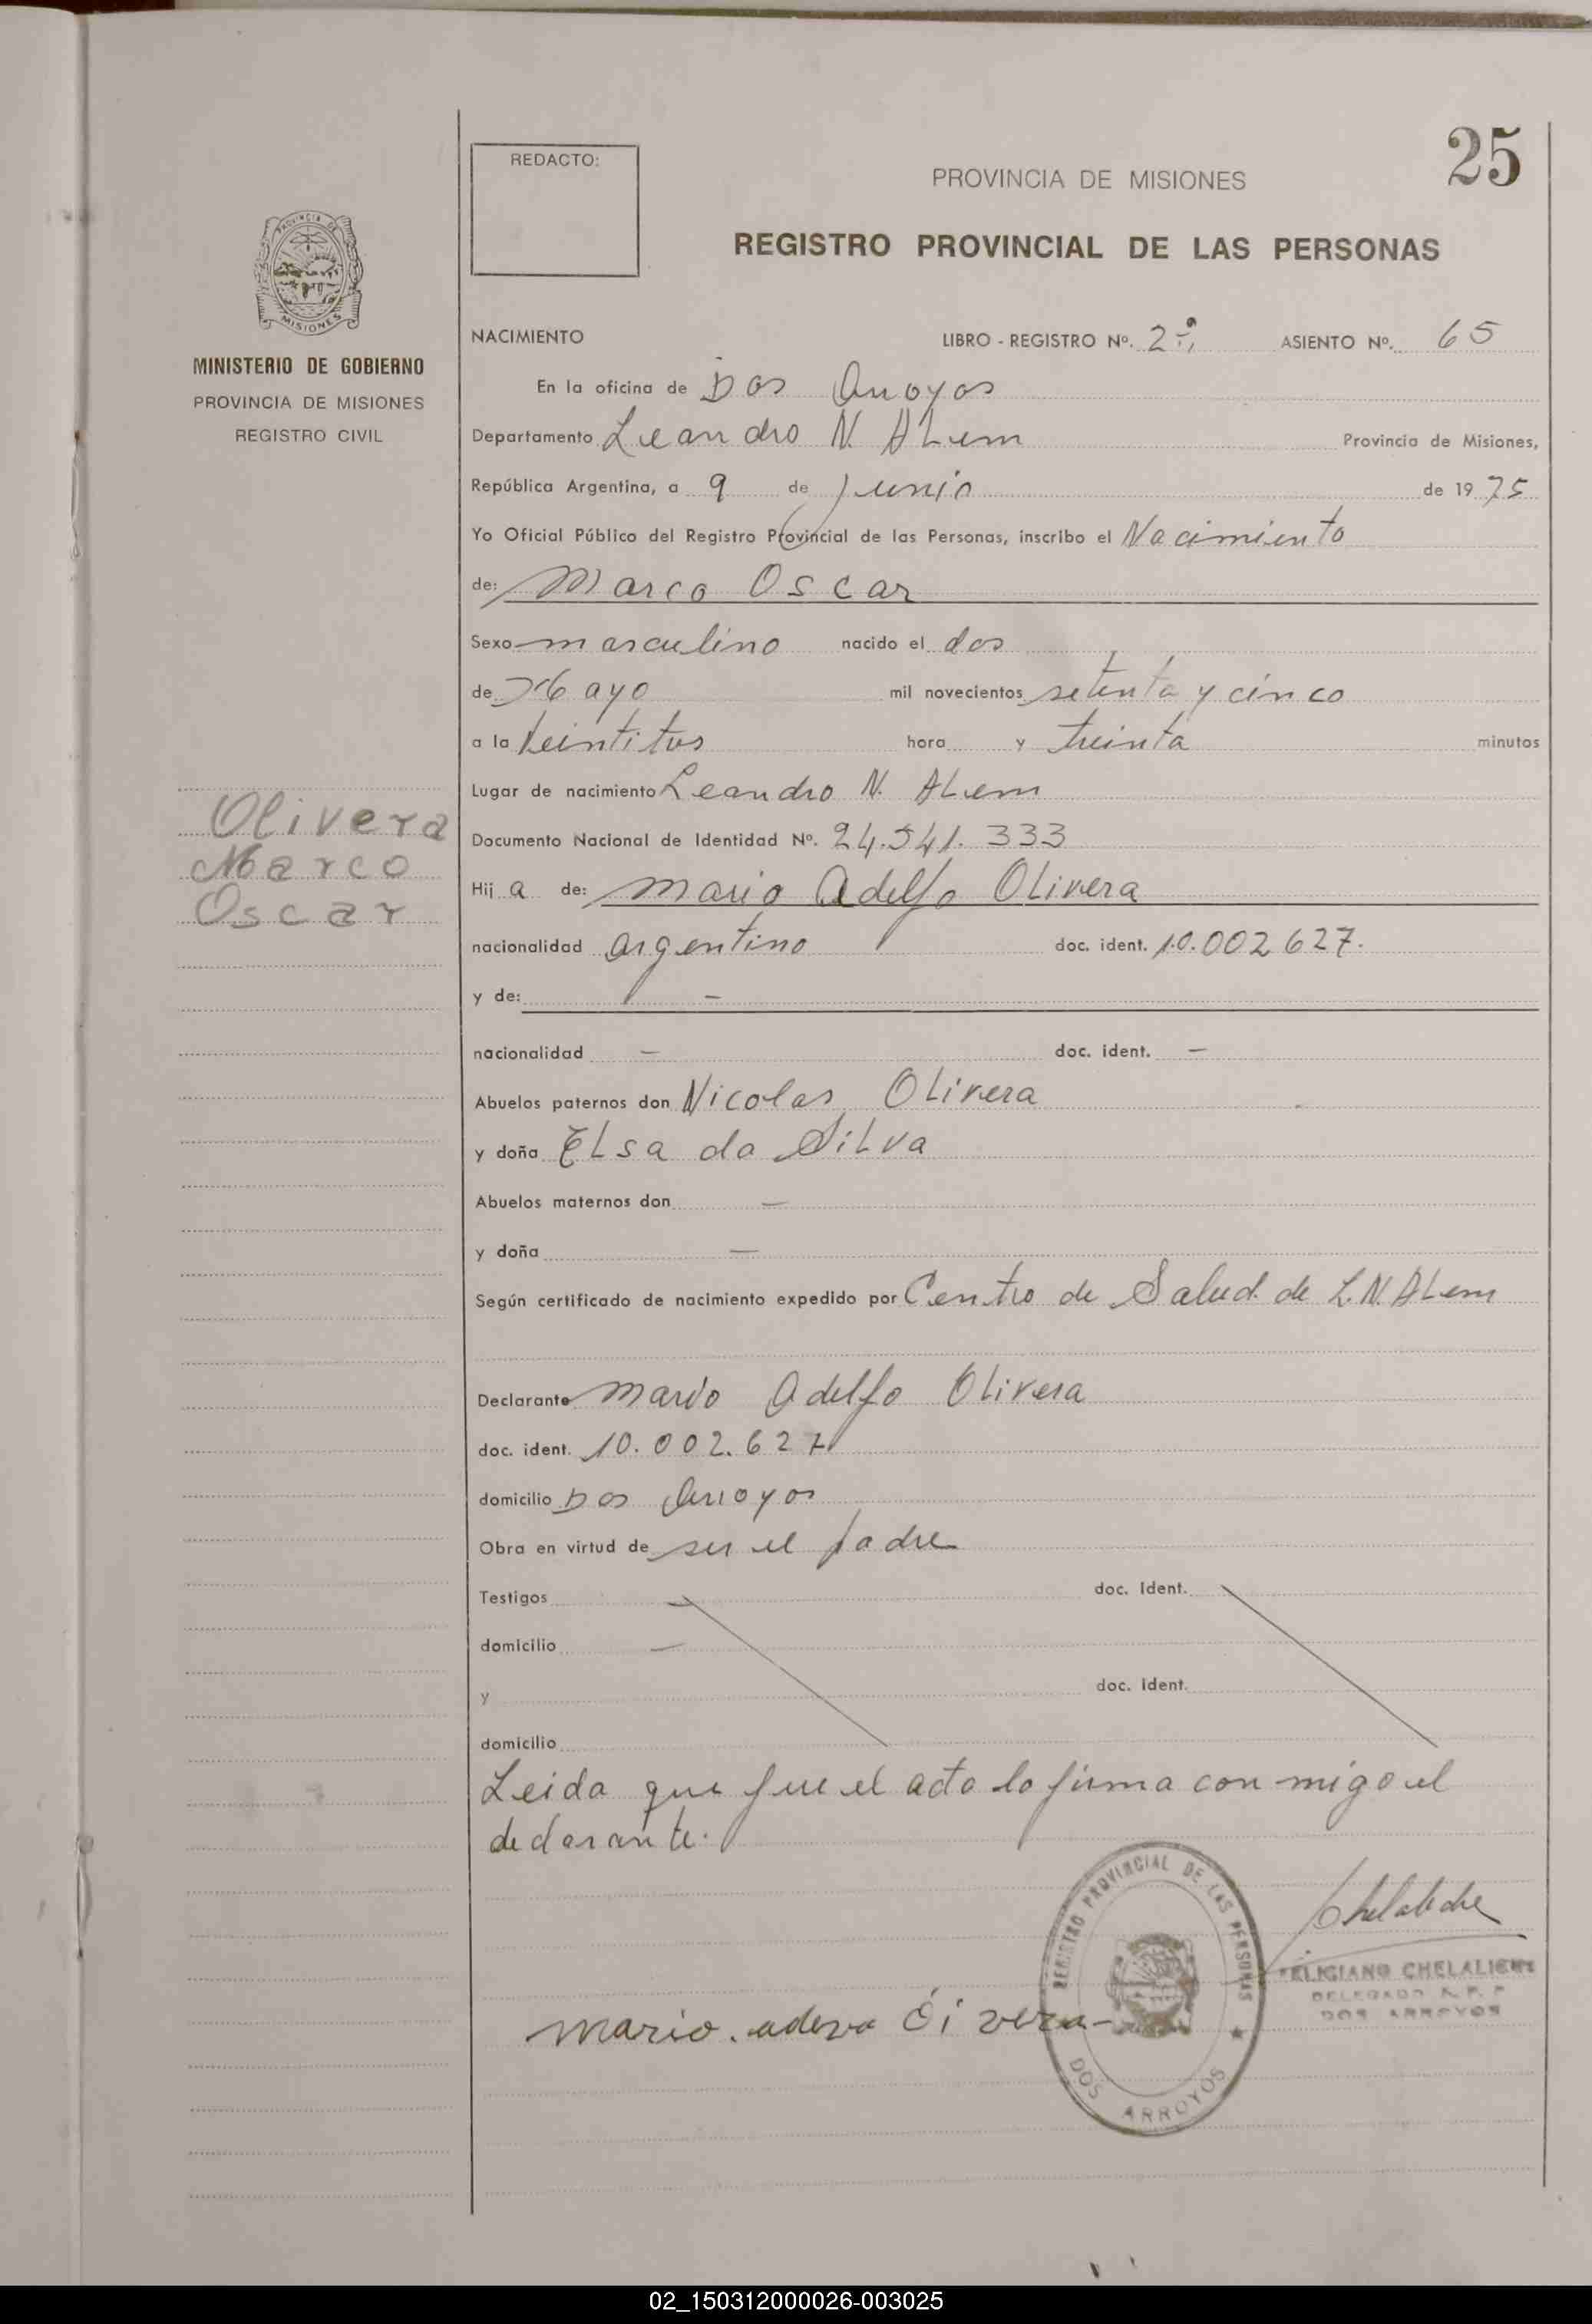 25
REDACTO:
PROVINCIA DE MISIONES
REGISTRO PROVINCIAL DE LAS PERSONAS
PROVINCIA DE
MISIONES
MINISTERIO DE GOBIERNO
PROVINCIA DE MISIONES
REGISTRO CIVIL
NACIMIENTO LIBRO - REGISTRO Nº. 2º ASIENTO Nº. 65
En la oficina de Dos Arroyos
Departamento Leandro N. ALem Provincia de Misiones,
República Argentina, a 9 de Junio de 1975
Yo Oficial Público del Registro Provincial de las Personas, inscribo el Nacimiento
de: Marco Oscar
Sexo masculino nacido el dos
de Mayo mil novecientos setenta y cinco
a la veintitres hora y treinta minutos
Lugar de nacimiento Leandro N. ALem
Olivera
Marco
Oscar
Documento Nacional de Identidad Nº. 24.541.333
Hij a de: Mario Adelfo OLivera
nacionalidad argentino doc. ident. 10.002627.
y de: -
nacionalidad - doc. ident. -
Abuelos paternos don Nicolas OLivera
y doña ELsa da SiLva
Abuelos maternos don -
y doña -
Según certificado de nacimiento expedido por Centro de Salud de L.N.ALem
Declarante Mario Adelfo OLivera
doc. ident. 10.002.627
domicilio Dos Arroyos
Obra en virtud de ser el padre
Testigos - doc. Ident.
domicilio -
y doc. Ident.
domicilio
Leida que fue el acta la firma con migo el
declarante.
REGISTRO PROVINCIAL DE LAS PERSONAS
DOS ARROYOS
FELICIANO CHELALICHE
DELEGADO R. P. P
DOS ARROYOS
mario
02_150312000026-003025